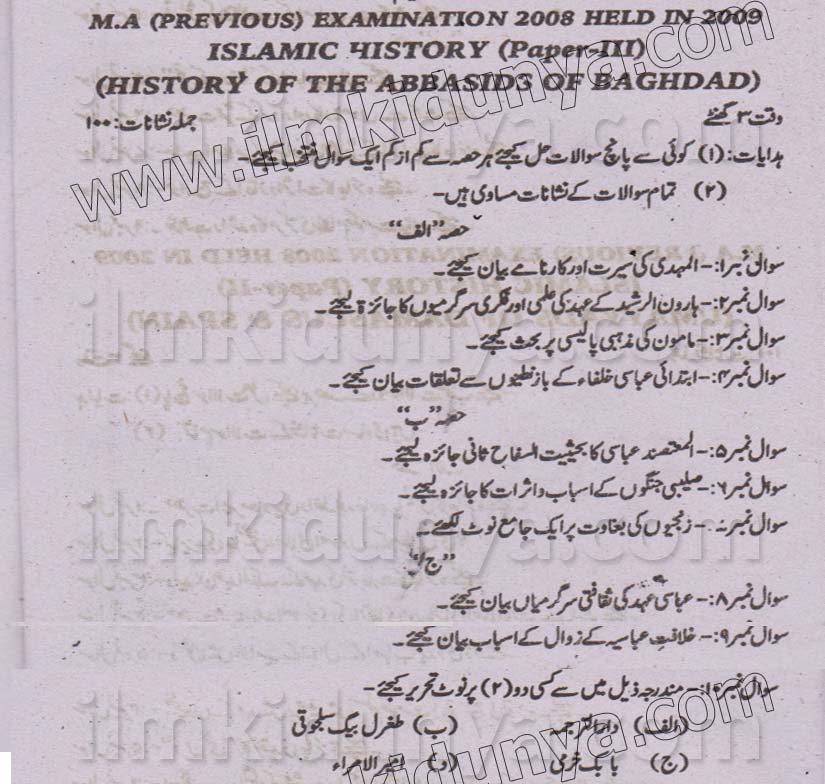 M.A (PREVIOUS) EXAMINATION 2008 HELD IN 2009
ISLAMIC HISTORY (Paper-III)
(HISTORY OF THE ABBASIDS OF BAGHDAD)
وقت ۳ گھنٹے جملہ نشانات: ۱۰۰
ہدایات: (۱) کوئی سے پانچ سوالات حل کیجئے ہر حصہ سے کم از کم ایک سوال منتخب کیجئے۔
(۲) تمام سوالات کے نشانات مساوی ہیں۔
حصہ "الف"
سوال نمبر۱:- المہدی کی سیرت اور کارنامے بیان کیجئے۔
سوال نمبر۲:- ہارون الرشید کے عہد کی علمی اور فکری سرگرمیوں کا جائزہ لیجئے۔
سوال نمبر۳:- مامون کی مذہبی پالیسی پر بحث کیجئے۔
سوال نمبر۴:- ابتدائی عباسی خلفاء کے بازنطینوں سے تعلقات بیان کیجئے۔
حصہ "ب"
سوال نمبر۵:- المعتصند عباسی کا بحیثیت السفاح ثانی جائزہ لیجئے۔
سوال نمبر۶:- صلیبی جنگوں کے اسباب و اثرات کا جائزہ لیجئے۔
سوال نمبر۷:- زنجیوں کی بغاوت پر ایک جامع نوٹ لکھئے۔
"ج"
سوال نمبر۸:- عباسی عہد کی ثقافتی سرگرمیاں بیان کیجئے۔
سوال نمبر۹:- خلافتِ عباسیہ کے زوال کے اسباب بیان کیجئے۔
سوال نمبر۱۰:- مندرجہ ذیل میں سے کسی دو (۲) پر نوٹ تحریر کیجئے۔
(الف) دارالترجمہ (ب) طغرل بیگ سلجوقی
(ج) بابک خرمی (د) امیر الامراء
www.ilmkidunya.com
ilmkidunya.com
ilmkidunya.com
ilmkidunya.com
ilmkidunya.com